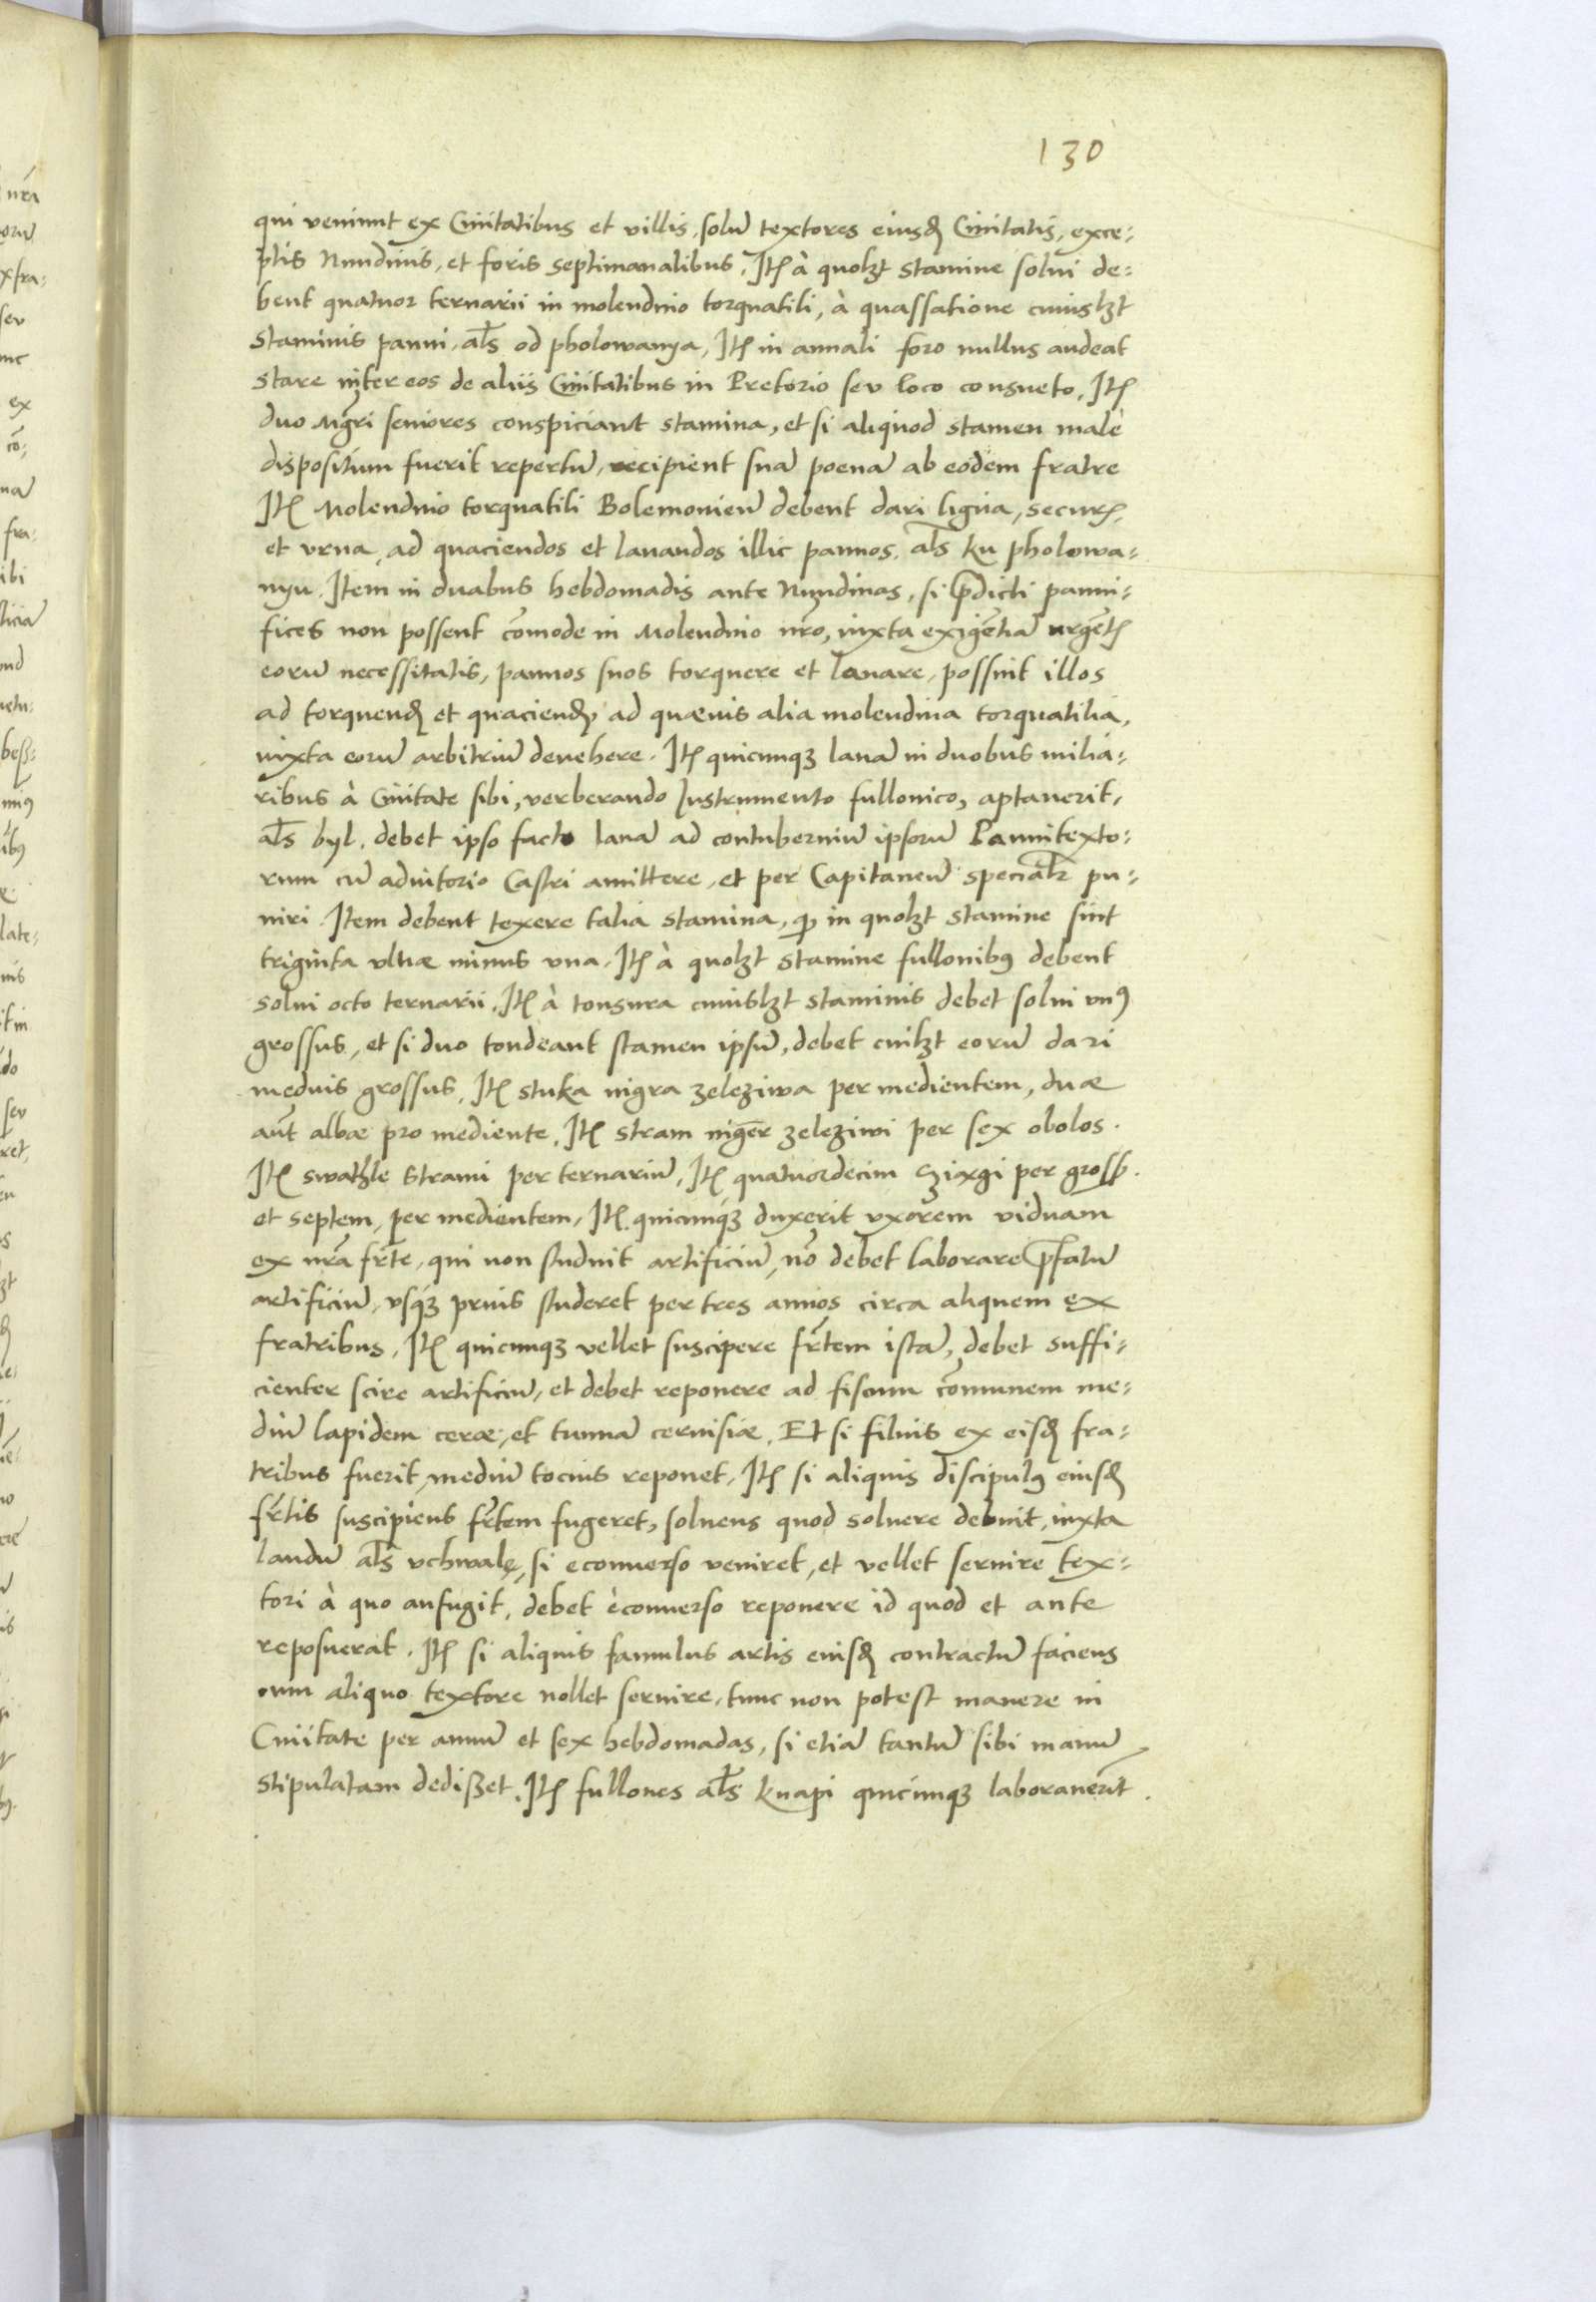 130
qui veniunt ex Ciuitatibus et villis, solũ textores eiusdꝫ Ciuitatis, exce-
ptis Nundinis, et foris septimanalibus. Itꝫ à quolꝫt stamine solui de-
bent quatuor ternarii in molendino torquatili, à quassatione cuiuslꝫt
staminis panni, al̃s od pholowanya, Itꝫ in annali foro nullus audeat
stare inter eos de aliis Ciuitatibus in Pretorio seu loco consueto, Itꝫ
duo Mgr̃i seniores conspiciant stamina, et si aliquod stamen malè
dispositum fuerit repertũ, recipient suã poenã ab eodem fratre
Itꝫ Molendino torquatili Bolemouien̄ debent dari ligna, securꝫ,
et vrna, ad quaciendos et lauandos illic pannos, al̃s ku pholowa-
nyu. Item in duabus hebdomadis ante Nundinas, si p̄dicti panni-
fices non possent cõmode in Molendino nr̃o, iuxta exigẽtiã urgẽtꝫ
eorũ necessitatis, pannos suos torquere et lauare, possint illos
ad torquendꝫ et quaciendꝫ, ad quæuis alia molendina torquatilia,
iuxta eorũ arbitriũ deuehere. Itꝫ quicunqꝫ lanã in duobus milia-
ribus à Ciuitate sibi, verberando Instrumento fullonico, aptauerit,
al̃s byl, debet ipso facto lanã ad contuberniũ ipsorũ Pannitexto-
rum cũ adiutorio Castri amittere, et per Capitaneũ speciaĩr pu-
niri. Item debent texere talia stamina, qꝫ in quolꝫt stamine sint
triginta vlnæ minus vna. Itꝫ à quolꝫt stamine fullonibꝰ debent
solui octo ternarii. Itꝫ à tonsura cuiuslꝫt staminis debet solui vnꝰ
grossus, et si duo tondeant stamen ipsũ, debet cuilꝫt eorũ dari
medius grossus, Itꝫ stuka nigra zeleziwa per medientem, duæ
aũt albæ pro mediente. Itꝫ stram nigẽr zeleziwi per sex obolos.
Itꝫ swathle strami per ternariũ, Itꝫ quatuordecim per gross.
et septem, per medientem, Itꝫ quicunqꝫ duxerit vxorem viduam
ex nr̃a fr̃te, qui non studuit artificiũ, nõ debet laborare p̄fatũ
artificiũ, vsqꝫ prius studeret per tres annos circa aliquem ex
fratribus, Itꝫ quicunqꝫ vellet suscipere fr̃tem istã, debet suffi-
cienter scire artificiũ, et debet reponere ad fiscum cõmunem me-
diũ lapidem ceræ, et tunnã ceruisiæ. Et si filius ex eisdꝫ fra-
tribus fuerit, mediũ tocius reponet, Itꝫ si aliquis discipulꝰ eiusdꝫ
fr̃tis suscipiens fr̃tem fugeret, soluens quod soluere debuit, iuxta
laudũ al̃s vchwalę, si econuerso veniret, et vellet seruire tex-
tori à quo aufugit, debet èconuerso reponere id quod et ante
reposuerat. Itꝫ si aliquis famulus artis eiusdꝫ contractũ faciens
cum aliquo textore nollet seruire, tunc non potest manere in
Ciuitate per annũ et sex hebdomadas, si etiã tantũ sibi manũ
stipulatam dedisset. Itꝫ fullones al̃s knapi quicunqꝫ laborauerĩt.